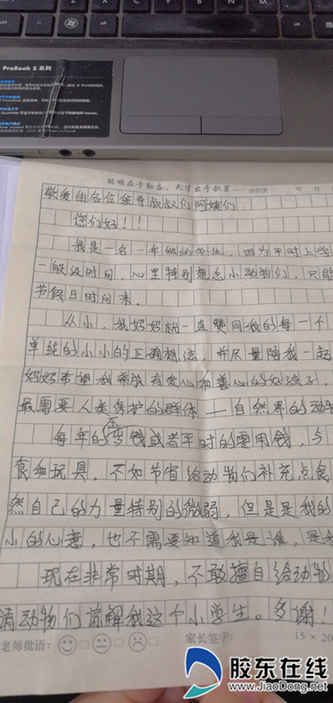 ProBook S 系列
聪明在于勤奋，天才在于积累
敬爱的各位领导叔叔们阿姨们
您们好！！
我是一名一年级的学生，因为平时上学
一段时间，心里特别想念小动物们，只能
节假日时间来。
从小，我妈妈就一直赞同我的每一个
单纯的小小的正确想法，并尽量陪我一起
妈妈希望我有爱心和善心的好孩子
最需要人类保护的群体——自然界的动物
每年的压岁钱或者平时的零用钱，与
食和玩具，不如节省给动物们补充点食
然自己的力量特别的微弱，但是是我的
小的心意，也不需要知道我是谁，是
现在非常时期，不敢擅自给动物
请动物们谅解我这个小学生。多谢！
老师批语： 家长签字： 15×
胶东在线
www.JiaoDong.net